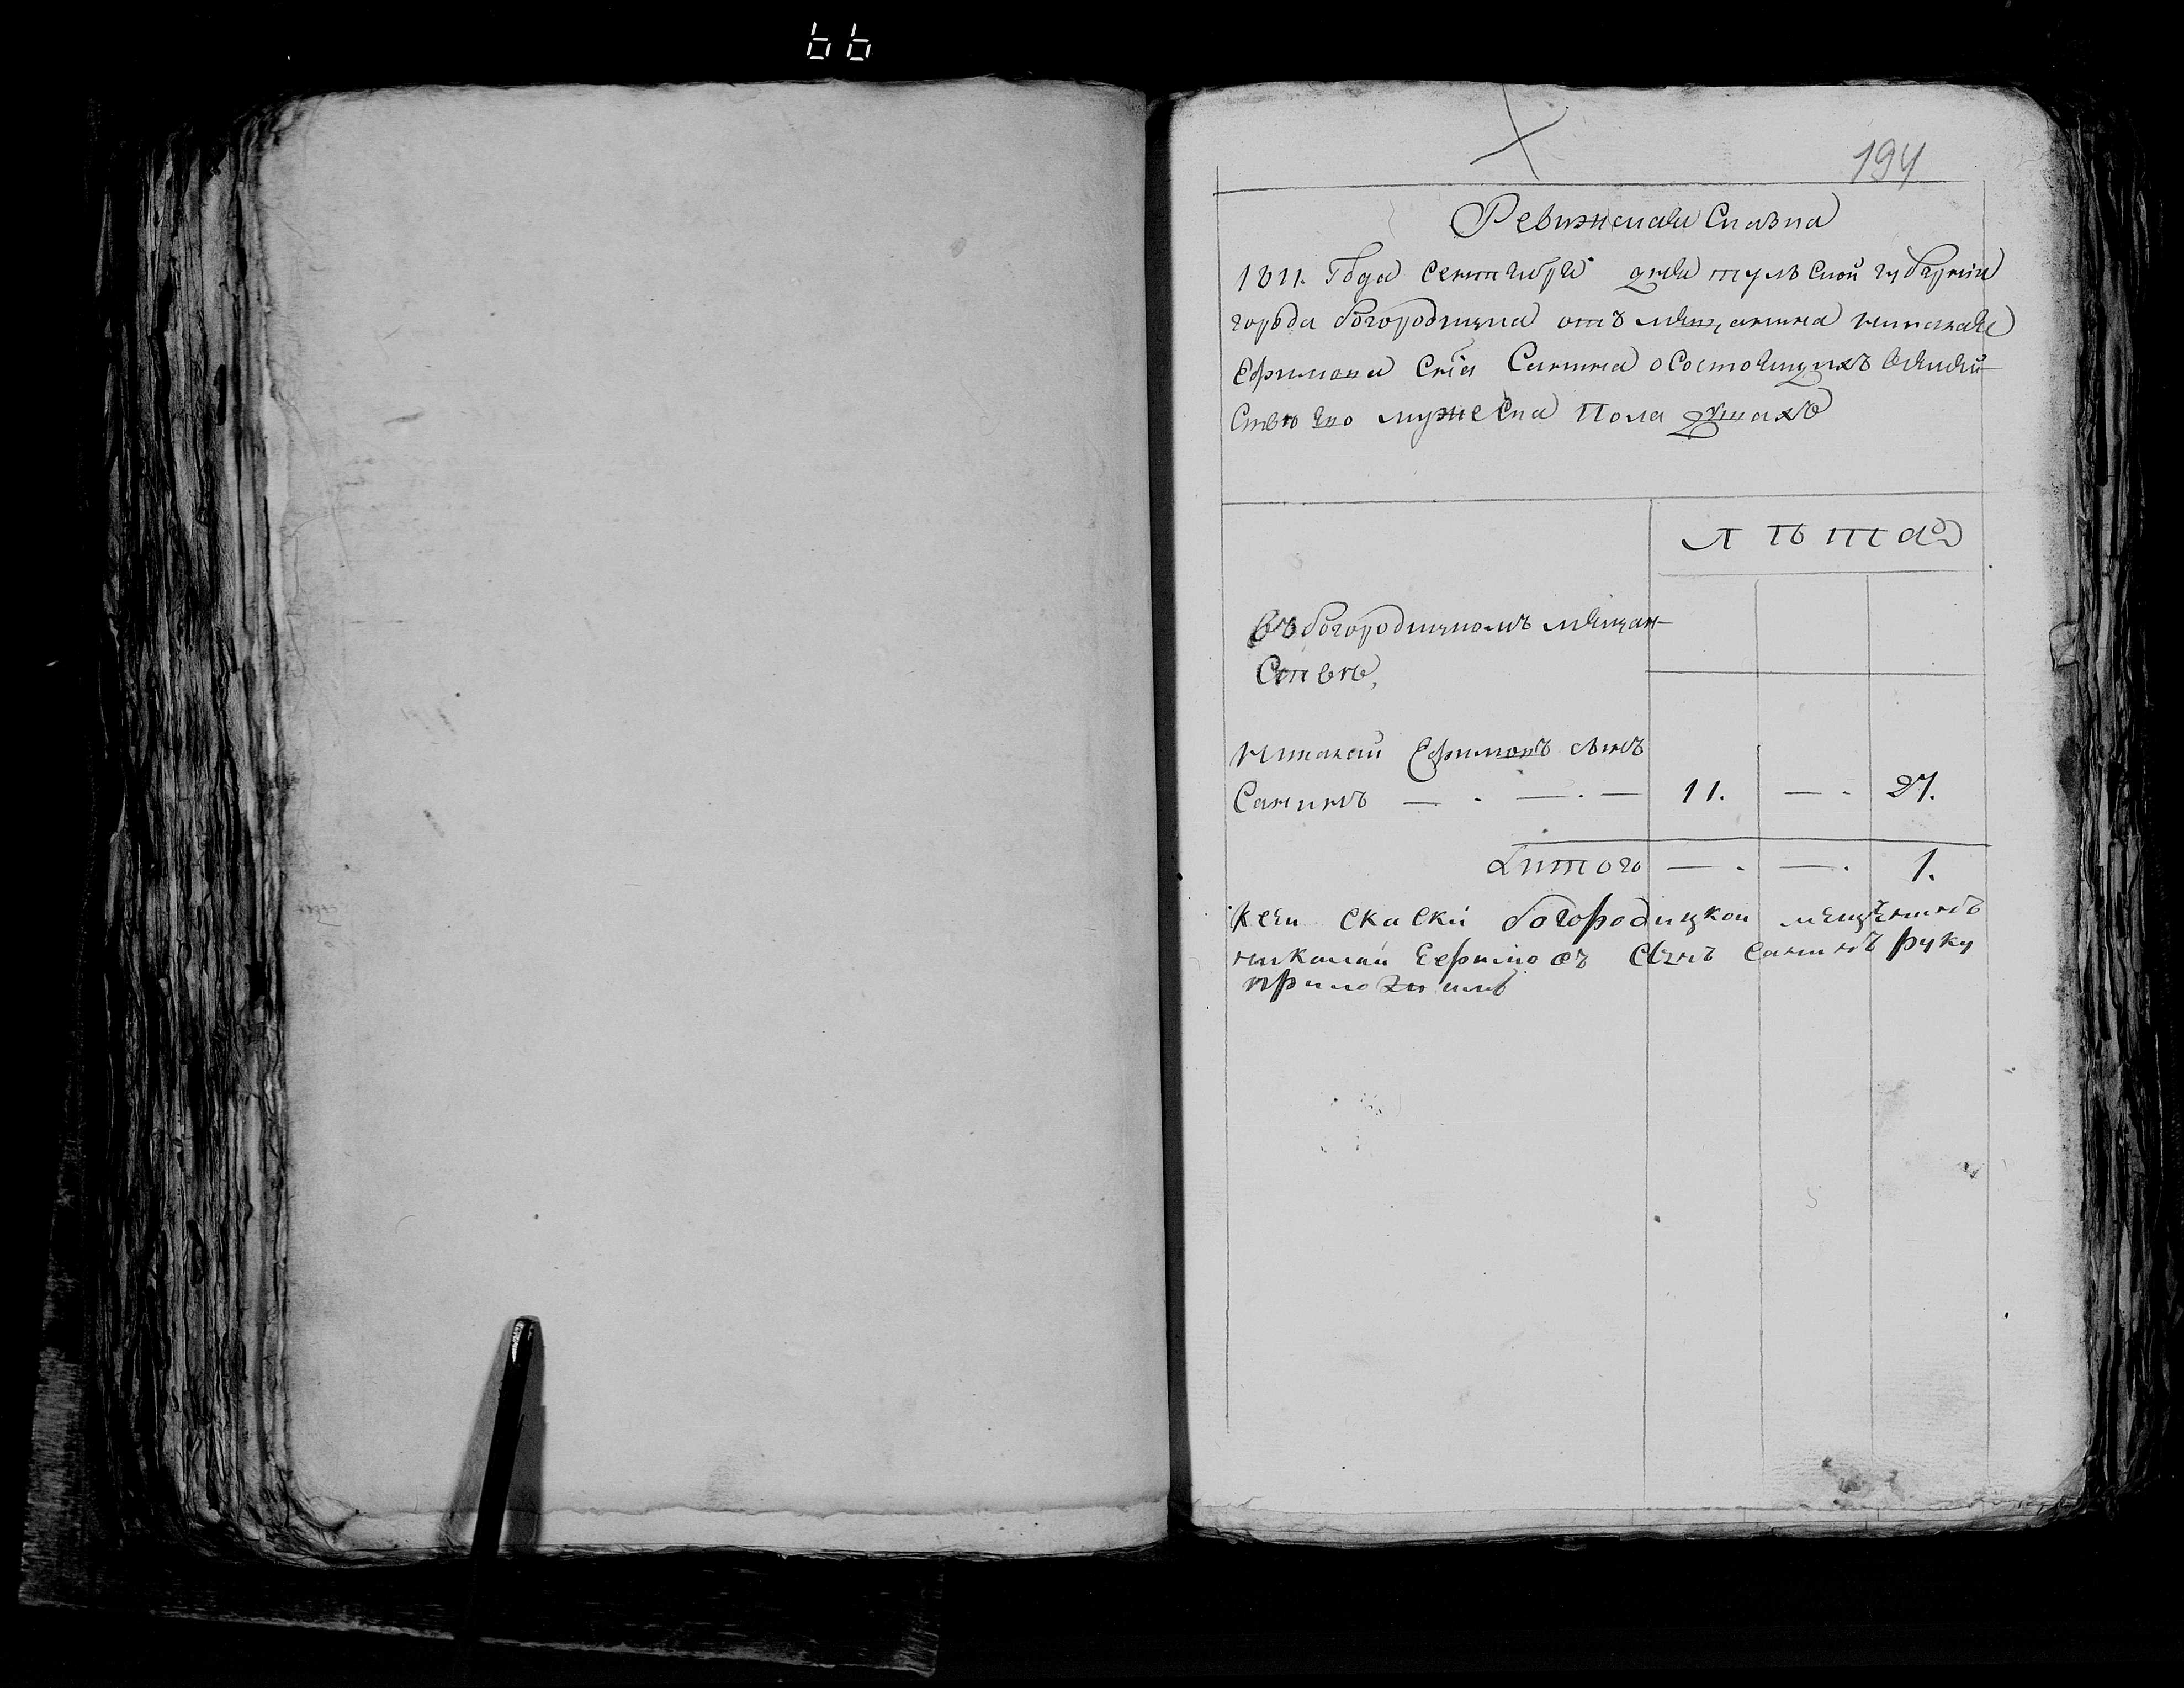 66
194
Ревижская Сказка
1811. Года Сентября дня тульской губернии
города богородицка отъ мещанина николая
Ефимова Сна Санина о Состоящихъ
мужеска Пола душахъ
Лѣта
въ богородицкомъ мещан-
Ствѣ,
Николай Ефимовъ сынъ
Санинъ — . — . — 11. — . 27.
Аитого — . — . 1.
К сеи скаски богородицкои мещенинъ
николаи Еефимовъ сынъ санинъ руку
приложилъ